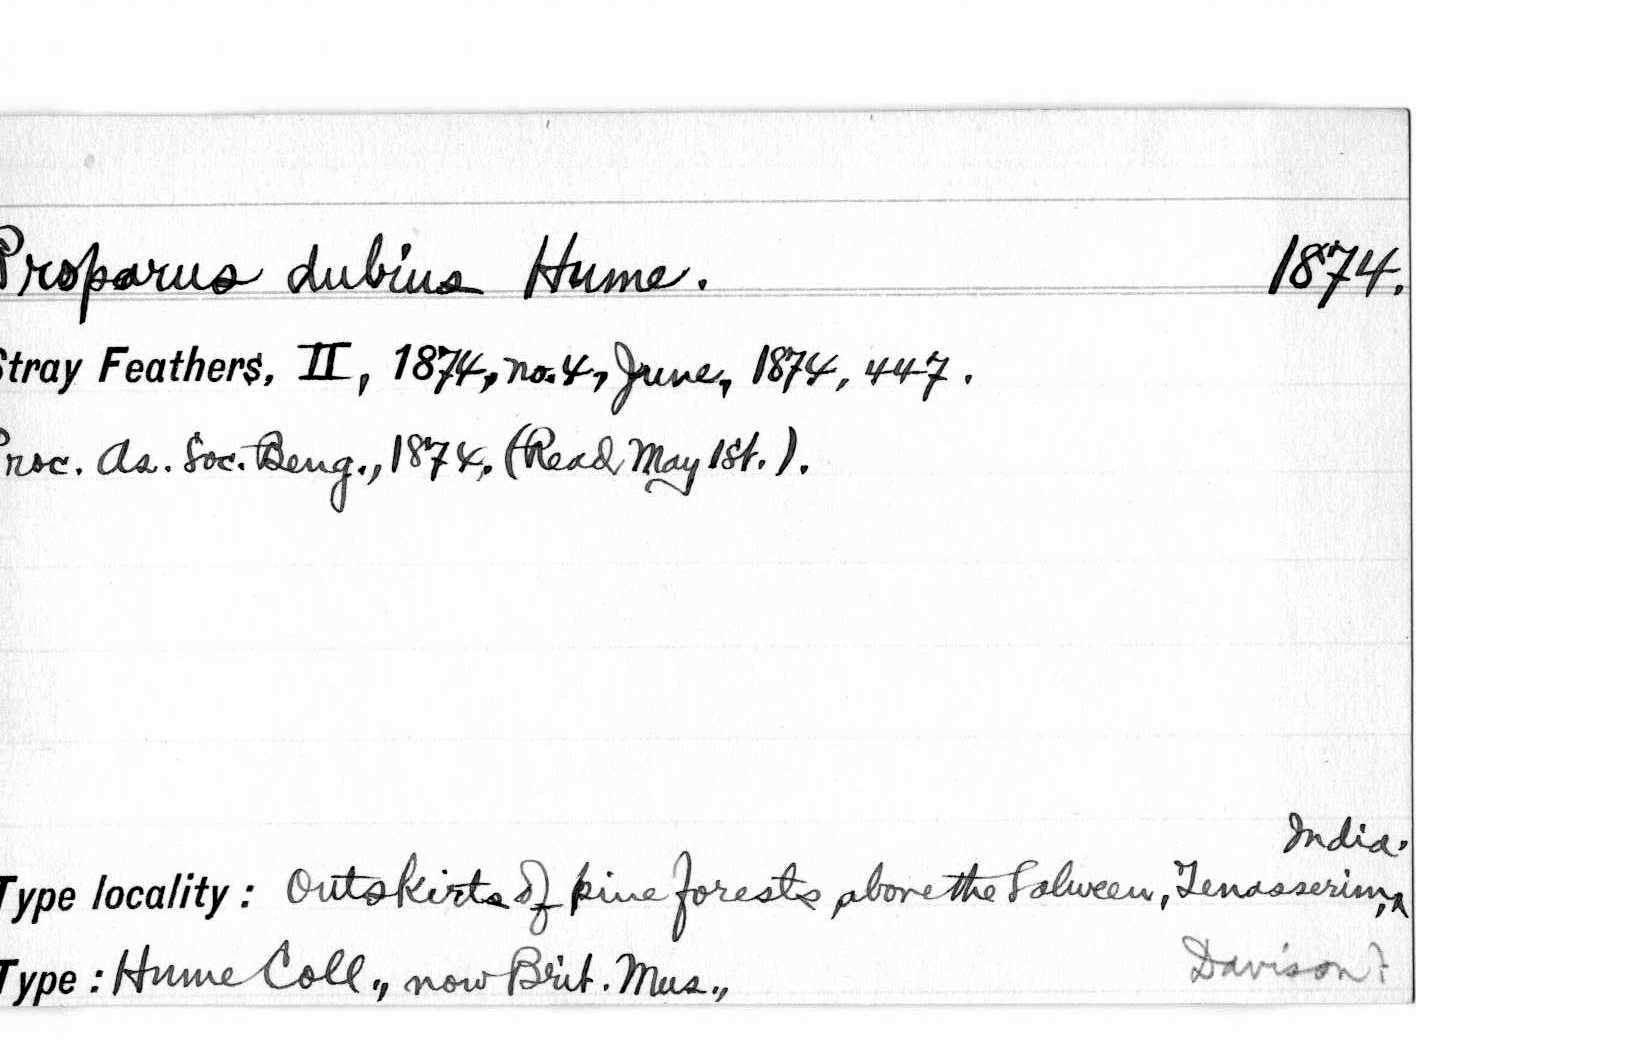 Proparus dubius Hume. 1874.
Stray Feathers, II, 1874, no. 4, June, 1874, 447.
Proc. As. Soc. Beng., 1874, (Read May 1st.).
India.
Type locality: Outskirts of pine forests above the Salween, Tenasserim,^
Type: Hume Coll., now Brit. Mus., Davison?